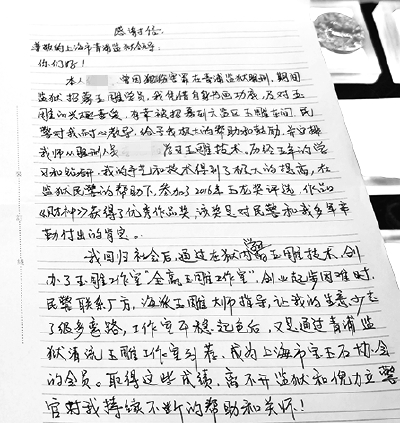 感谢信
尊敬的上海市青浦监狱领导:
你们好!
本人 曾因犯罪在青浦监狱服刑,期间
监狱招募玉雕学员,我凭借自身书画功底,及对玉
雕的兴趣喜爱,有幸被招募到六监区玉雕车间。民
警对我耐心教导,给予我极大的帮助和鼓励,并安排
我师从服刑人 学习玉雕技术,历经五年的学
习和钻研,我的手艺和技术得到了极大的提高,在
监狱民警的帮助下,参加了2016年玉龙奖评选,作品
《财神》获得了优秀作品奖,该奖是对民警和我多年辛
勤付出的肯定。
我回归社会后,通过在狱内学的玉雕技术,创
办了玉雕工作室“金赢玉雕工作室”,创业起步困难时,
民警联系厂方,海派玉雕大师指导,让我的生意少走
了很多弯路,工作室平稳起色后,又是通过青浦监
狱清流玉雕工作室引荐,成为上海市宝玉石协会
的会员。取得这些成绩,离不开监狱和倪力立警
官对我持续不断的帮助和关怀!